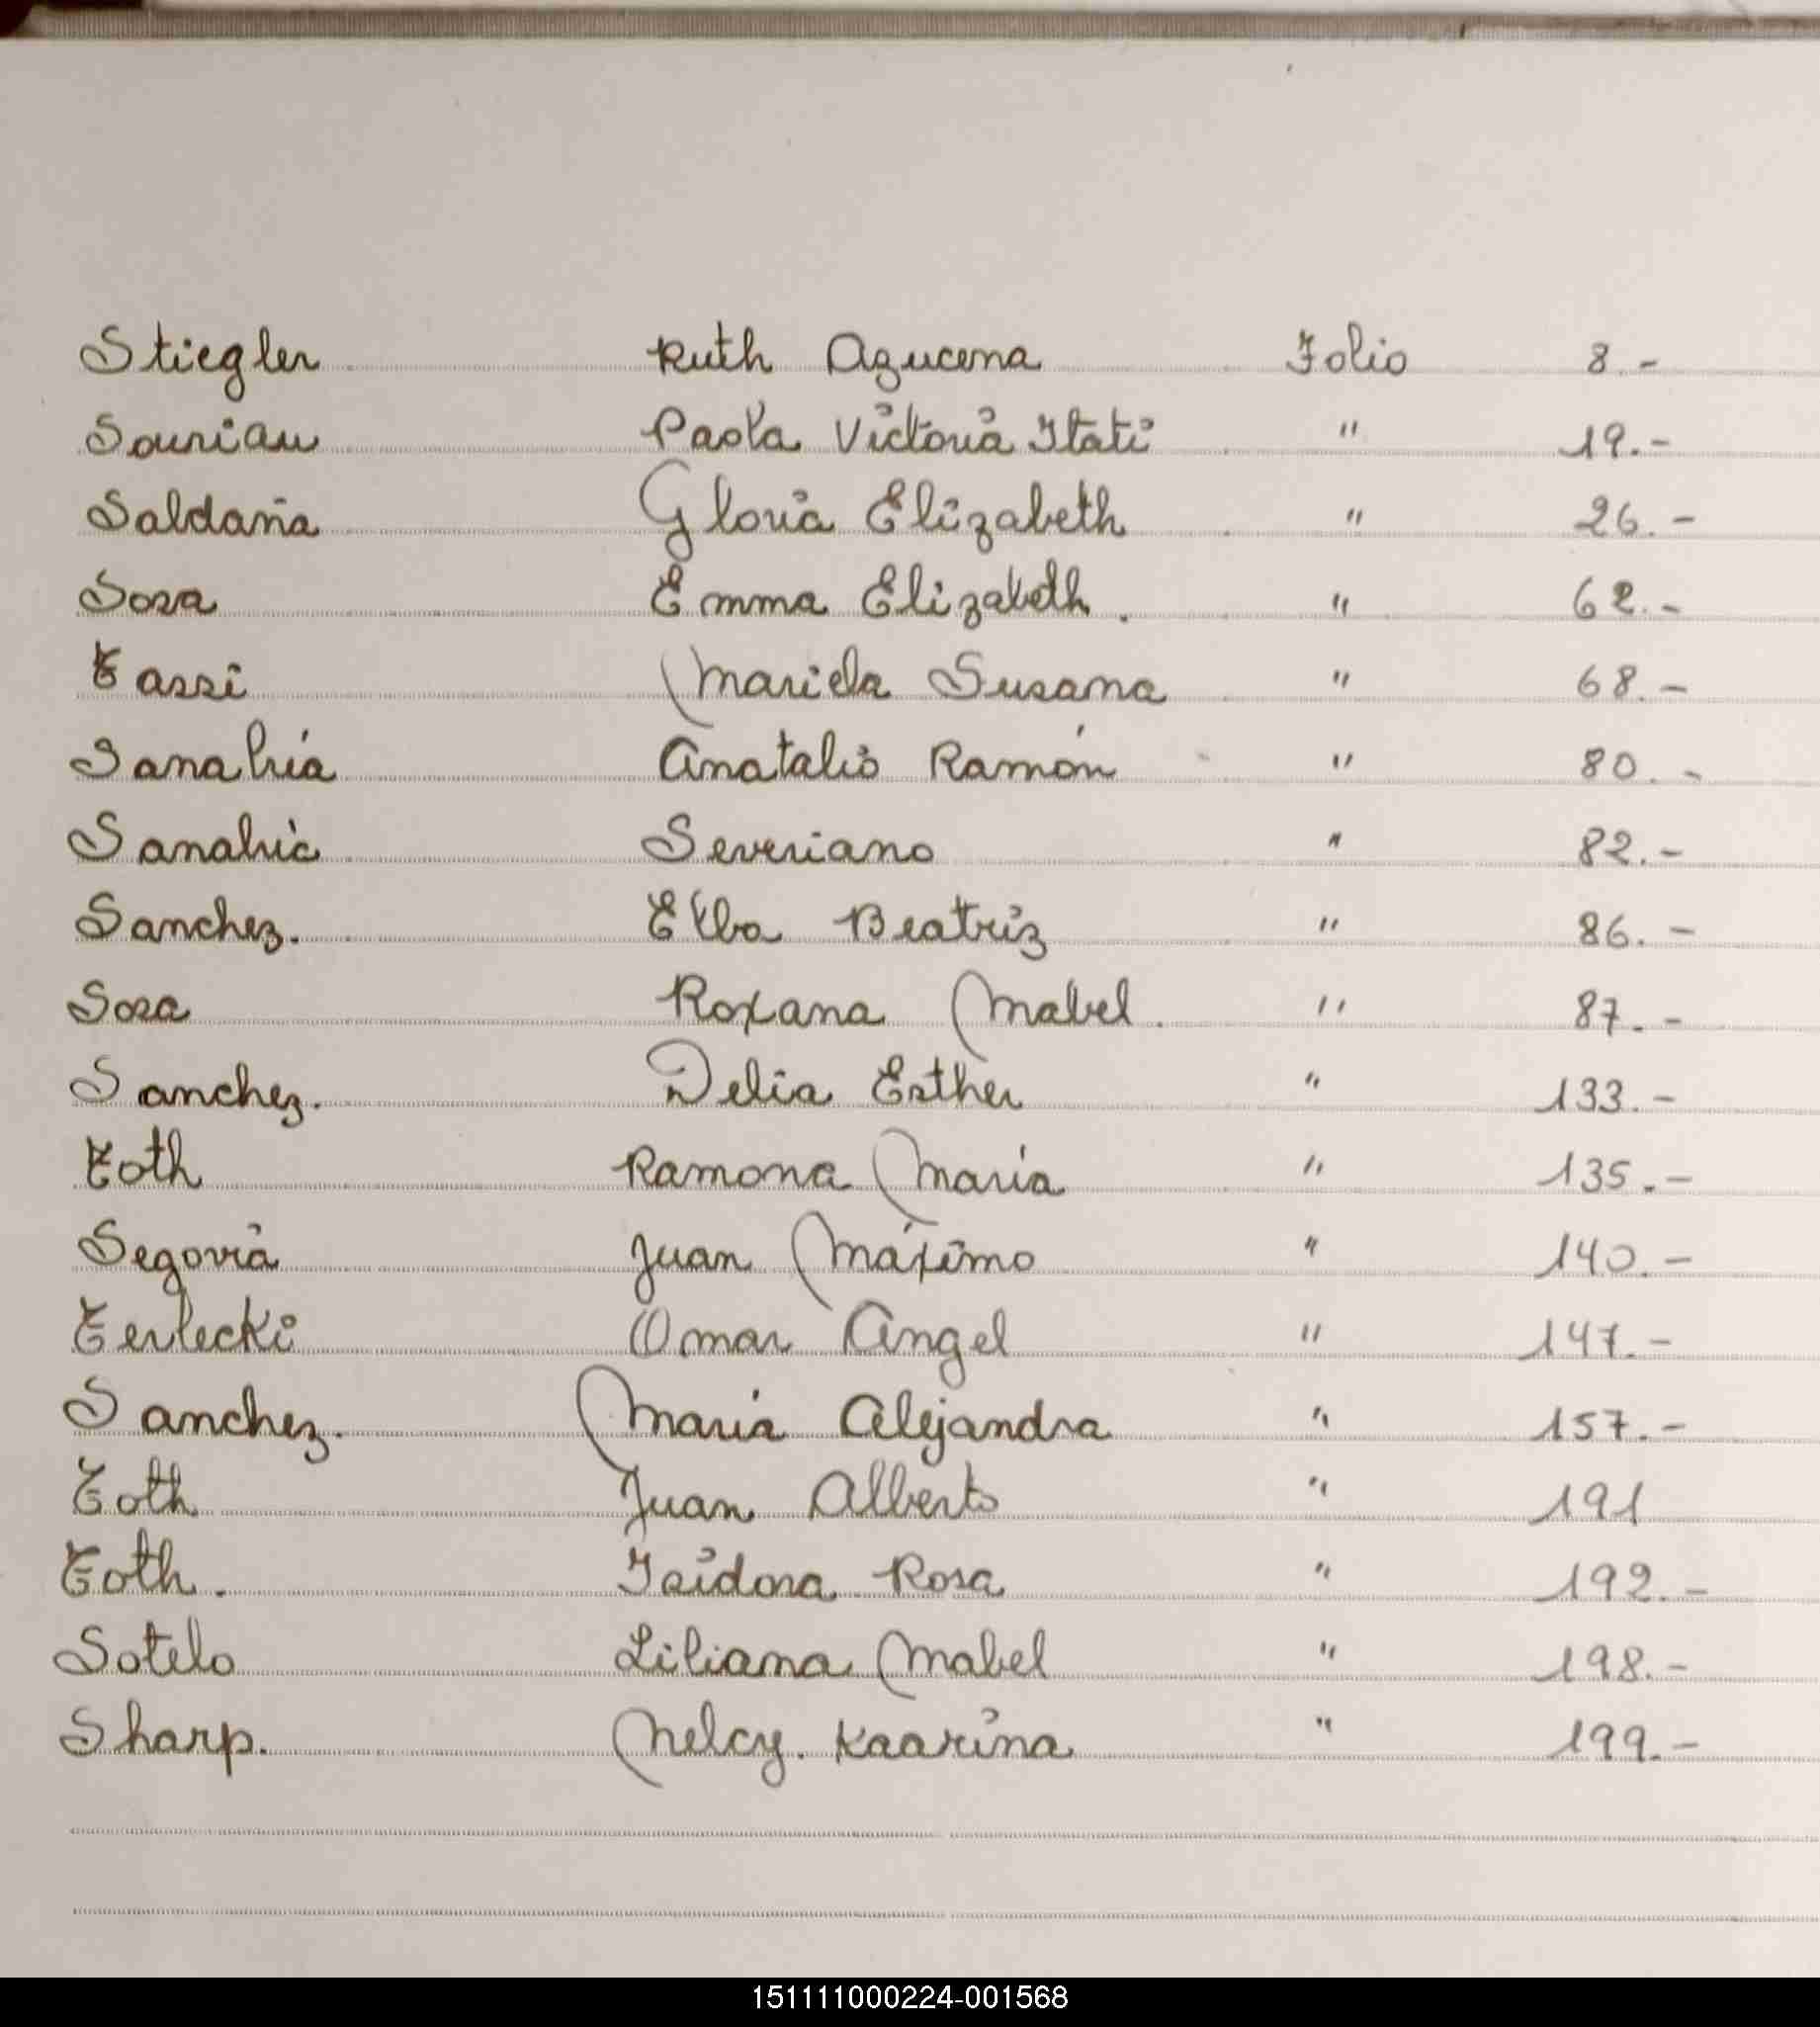 Stiegler Ruth Azucena Folio 8.-
Souriau Paola Victoria Itatí " 19.-
Saldaña Gloria Elizabeth " 26.-
Sosa Emma Elizabeth. " 62.-
Tassi Mariela Susana " 68.-
Sanabria Anatalio Ramón " 80.-
Sanabria Severiano " 82.-
Sanchez. Elba Beatriz " 86.-
Sosa Roxana Mabel. " 87.-
Sanchez. Delia Esther " 133.-
Toth Ramona María " 135.-
Segovia Juan Máximo " 140.-
Terlecki Omar Angel " 147.-
Sanchez. María Alejandra " 157.-
Toth Juan Alberto " 191
Toth. Isidora Rosa " 192.-
Sotelo Liliana Mabel " 198.-
Sharp. Nelcy. Kaarina " 199.-
151111000224-001568